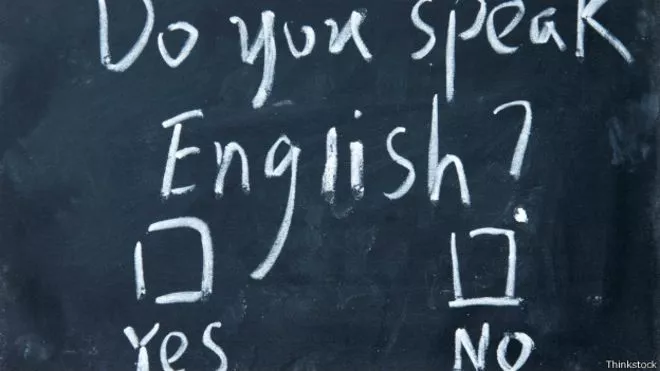 Do you speak
English?
Yes No
Thinkstock